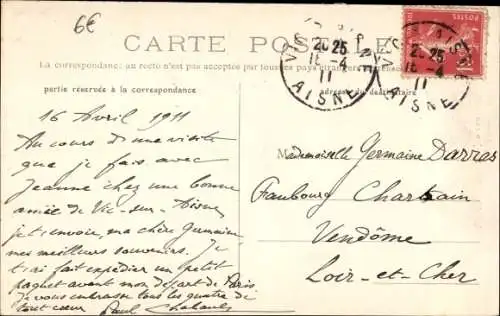 6€
CARTE POSTALE
La correspondance au recto n'est pas acceptée par tous les pays étrangers
partie réservée à la correspondance
adresse du destinataire
POSTES
VIC-S-AISNE
20 25
16 -4
11
AISNE
2 -25
16 -4
11
AISNE
16 Avril 1911
Au cours d'une visite
que je fais avec
Jeanne chez une bonne
amie de Vic-sur-Aisne
je t'envoie, ma chère Germaine
mes meilleurs souvenirs. Je
t'ai fait expédier un petit
paquet avant mon départ de Paris
Je vous embrasse tous les quatre de
tout cœur Paul
Mademoiselle Germaine Darras
Faubourg Chartrain
Vendôme
Loir-et-Cher